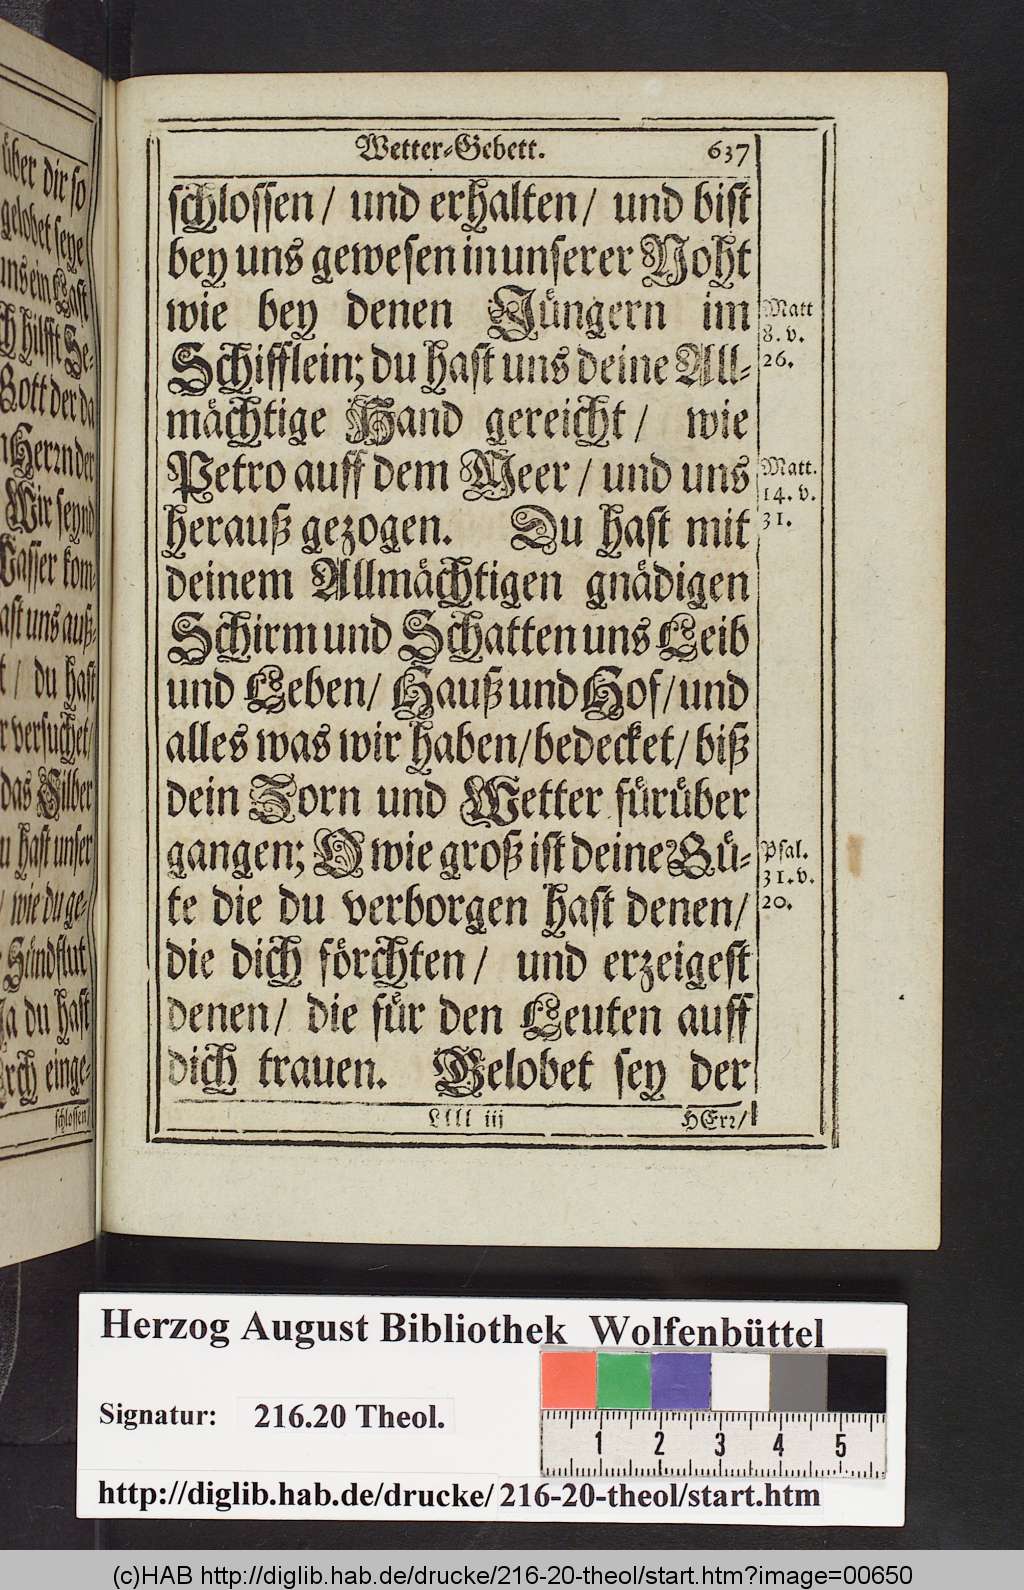 über dir so
gelobet seye
uns ein Last
ch hilfft Se-
Gott der da
n HErrn der
Wir seynd
Wasser kom-
ast uns auß-
t / du hast
r versuchet /
das Silber
u hast unser
/ wie du ge-
Sündflut
Ja du hast
Arch einge-
schlossen /
Wetter-Gebett. 637
schlossen / und erhalten / und bist
bey uns gewesen in unserer Noht
wie bey denen Jüngern im
Schifflein; du hast uns deine All-
mächtige Hand gereicht / wie
Petro auff dem Meer / und uns
herauß gezogen. Du hast mit
deinem Allmächtigen gnädigen
Schirm und Schatten uns Leib
und Leben / Hauß und Hof / und
alles was wir haben / bedecket / biß
dein Zorn und Wetter fürüber
gangen; O wie groß ist deine Gü-
te die du verborgen hast denen /
die dich förchten / und erzeigest
denen / die für den Leuten auff
dich trauen. Gelobet sey der
Llll iij HErr /
Matt
8. v.
26.
Matt.
14. v.
31.
Psal.
31. v.
20.
Herzog August Bibliothek Wolfenbüttel
Signatur: 216.20 Theol.
1 2 3 4 5
http://diglib.hab.de/drucke/216-20-theol/start.htm
(c)HAB http://diglib.hab.de/drucke/216-20-theol/start.htm?image=00650